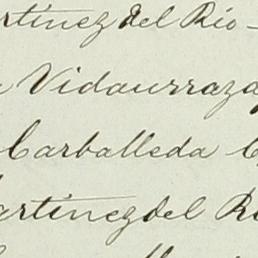 rtinez del Rio -
Vidaurraza
Carballeda
artinez del R